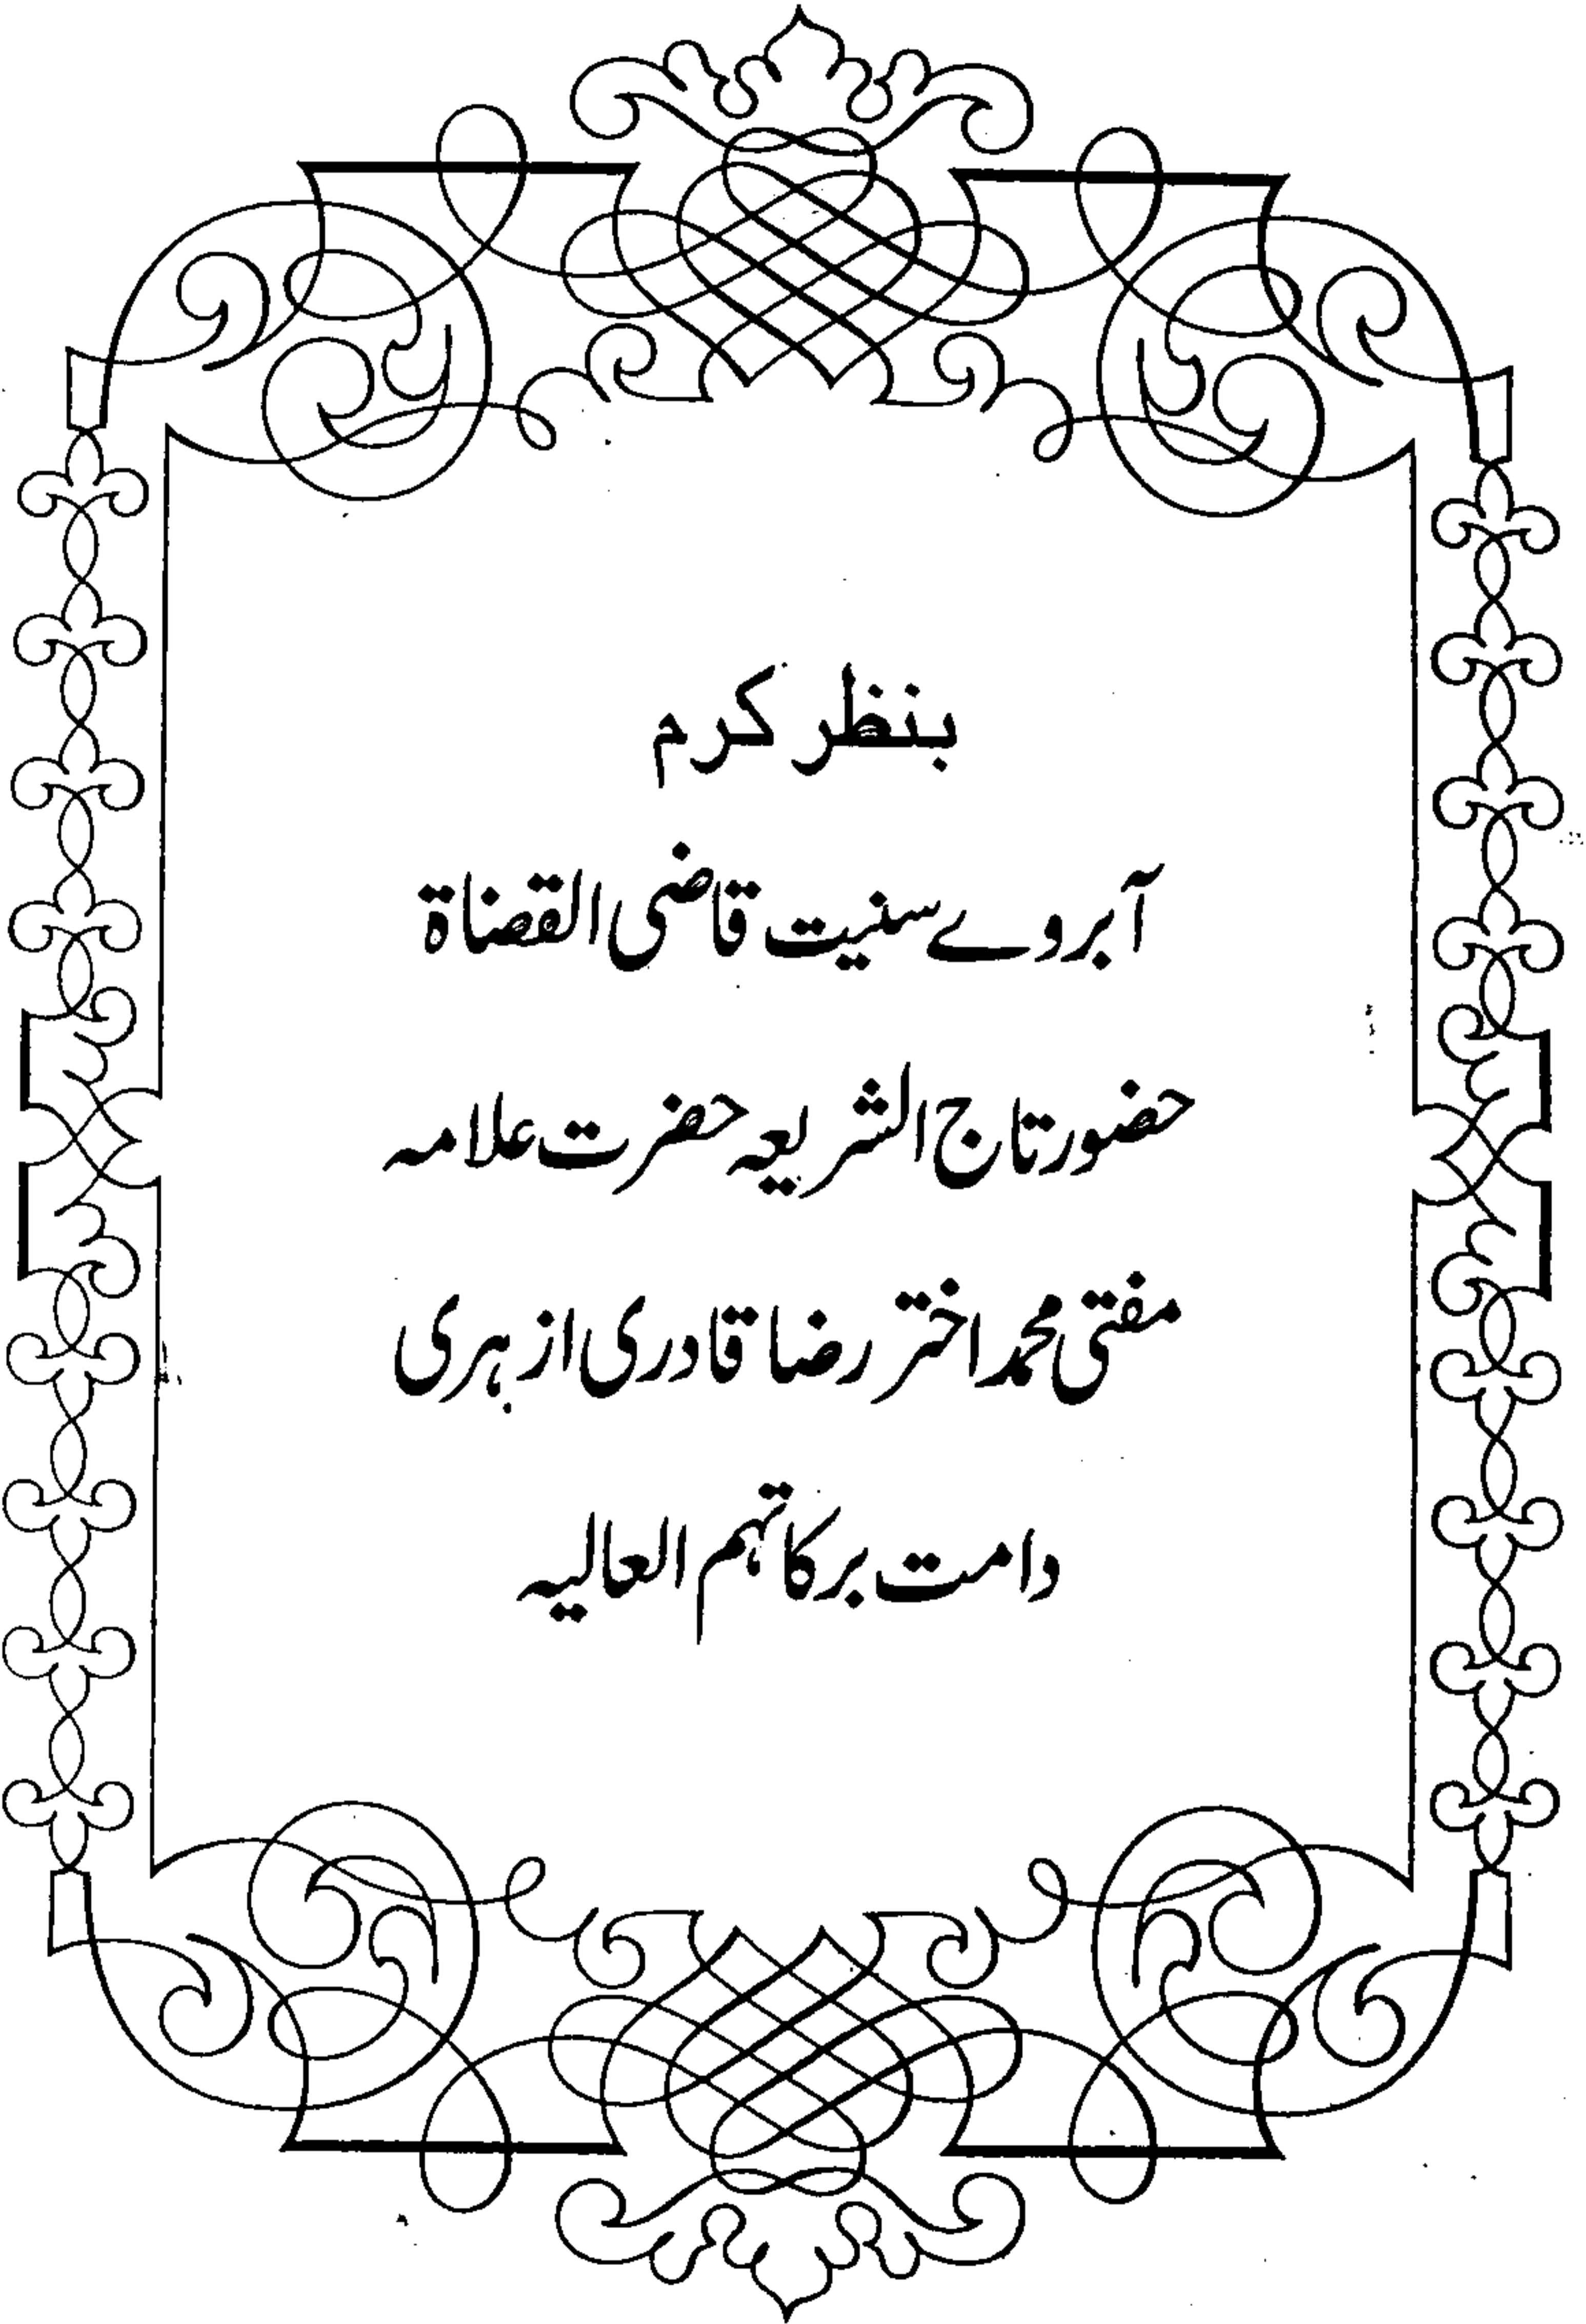 بنظر کرم
آبروے سنیت قاضی القضاة
حضور تاج الشریعہ حضرت علامہ
مفتی محمد اختر رضا قادری ازہری
دامت برکاتہم العالیہ